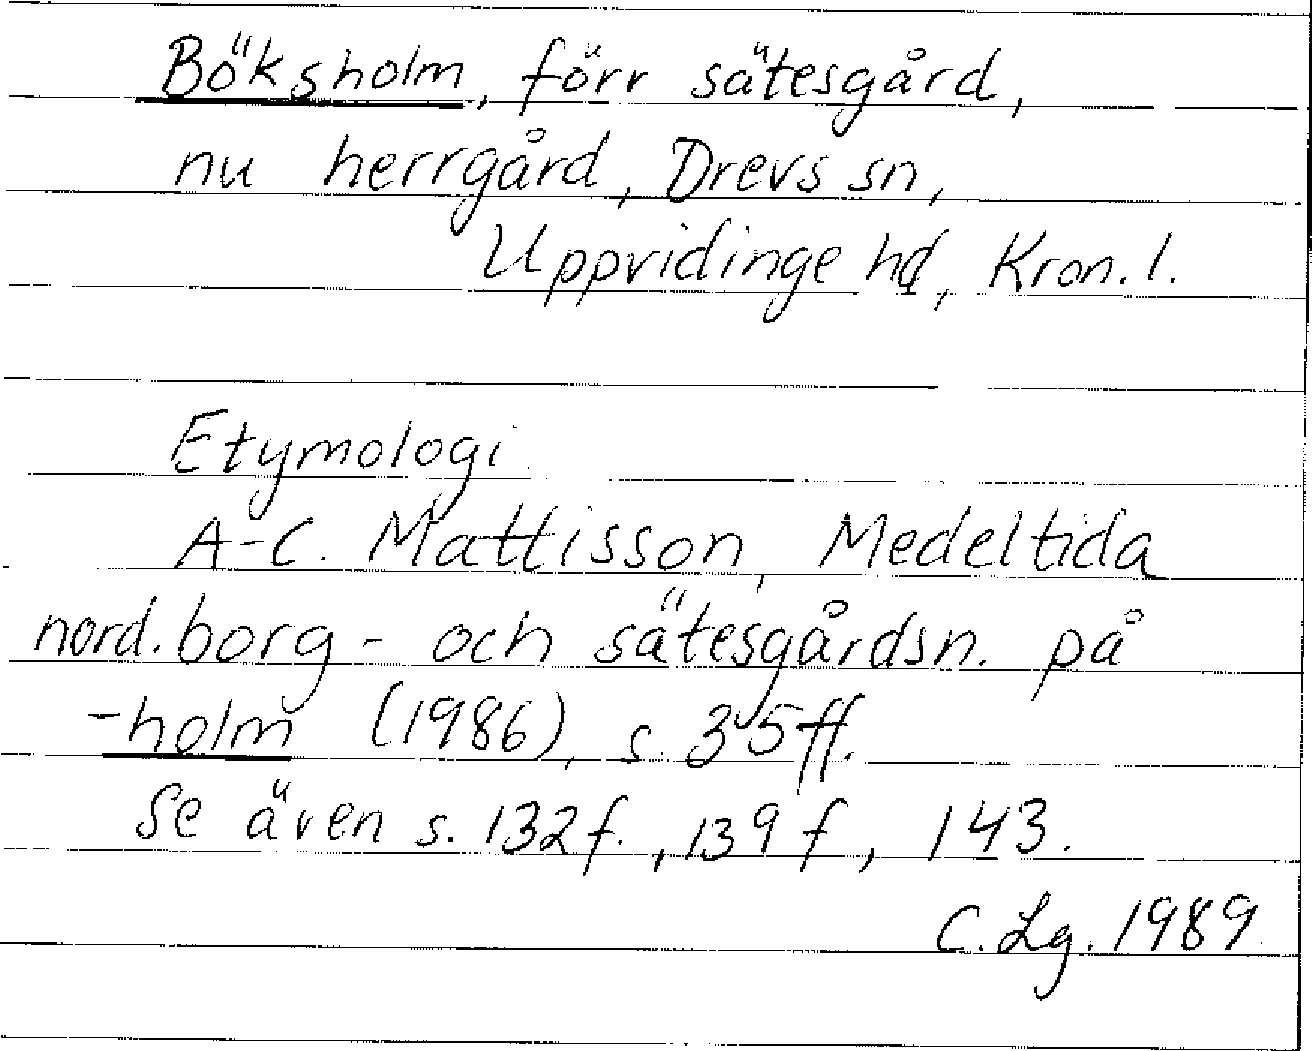 Böksholm, förr sätesgård,
nu herrgård, Drevs sn,
Uppvidinge hd, Kron. l.
Etymologi
A-C. Mattisson, Medeltida
nord. borg- och sätesgårdsn. på
-holm (1986), s. 35ff.
Se även s. 132f., 139f, 143.
C. Lg. 1989